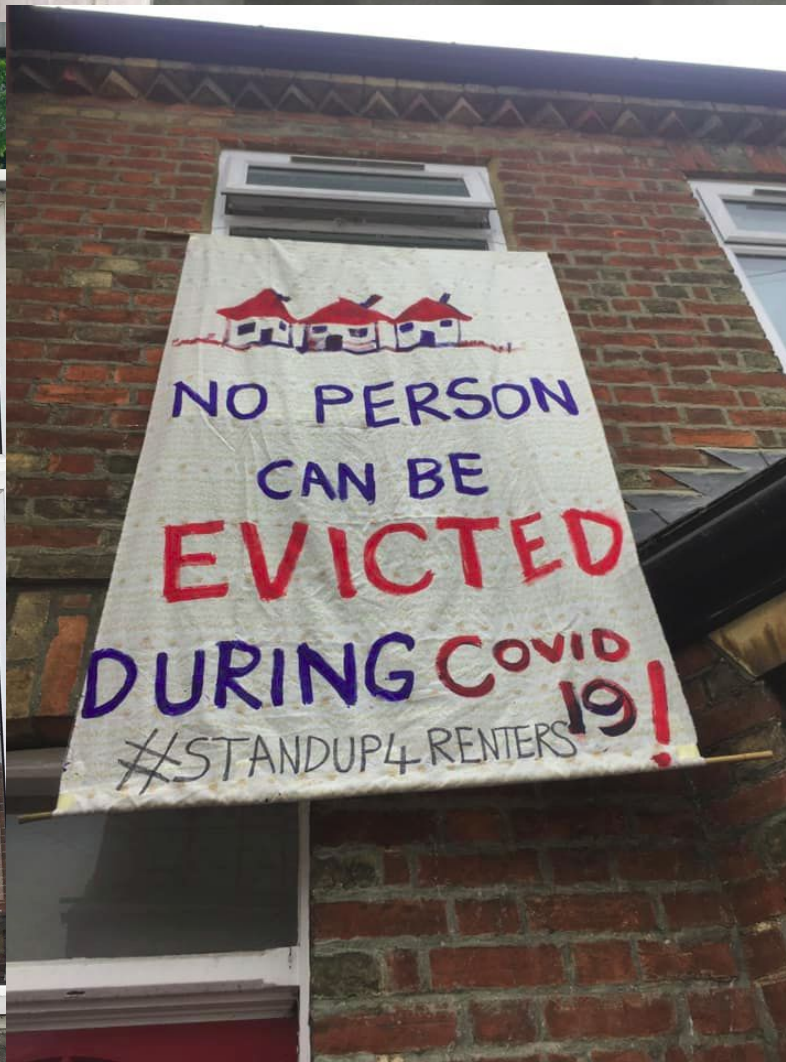 NO PERSON
CAN BE
EVICTED
DURING COVID
19!
#STANDUP4RENTERS